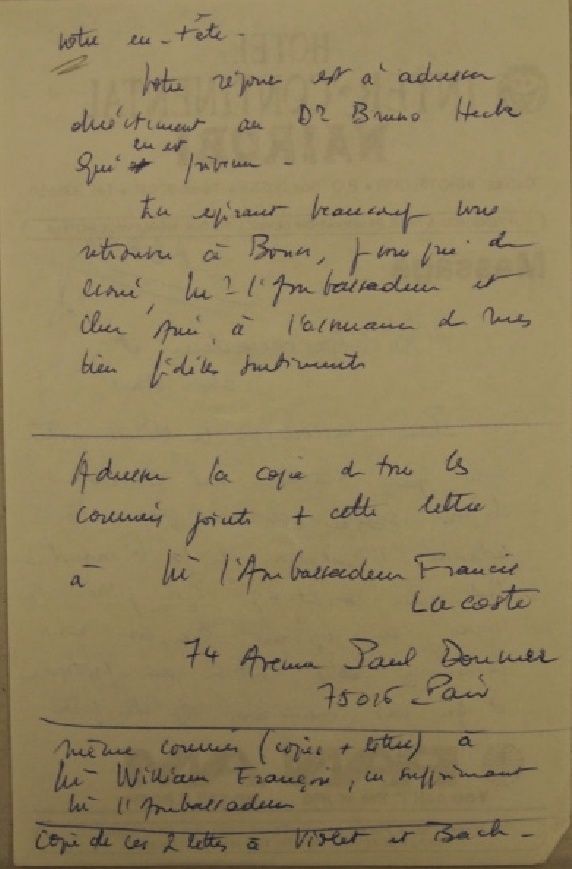 votre en-tête -
Votre réponse est à adresser
directement au Dr Bruno Heck
qui en est prévenu -
En espérant beaucoup vous
retrouver à Bonn, je vous prie de
croire, Mr l'Ambassadeur et
cher Ami, à l'assurance de mes
bien fidèles sentiments
Adresser la copie de tous les
courriers joints + cette lettre
à Mr l'Ambassadeur Francis
Lacoste
74 Avenue Paul Doumer
75016 Paris
même courrier (copies + lettre) à
Mr William François, en supprimant
Mr l'Ambassadeur
Copie de ces 2 lettres à Violet et Bach -